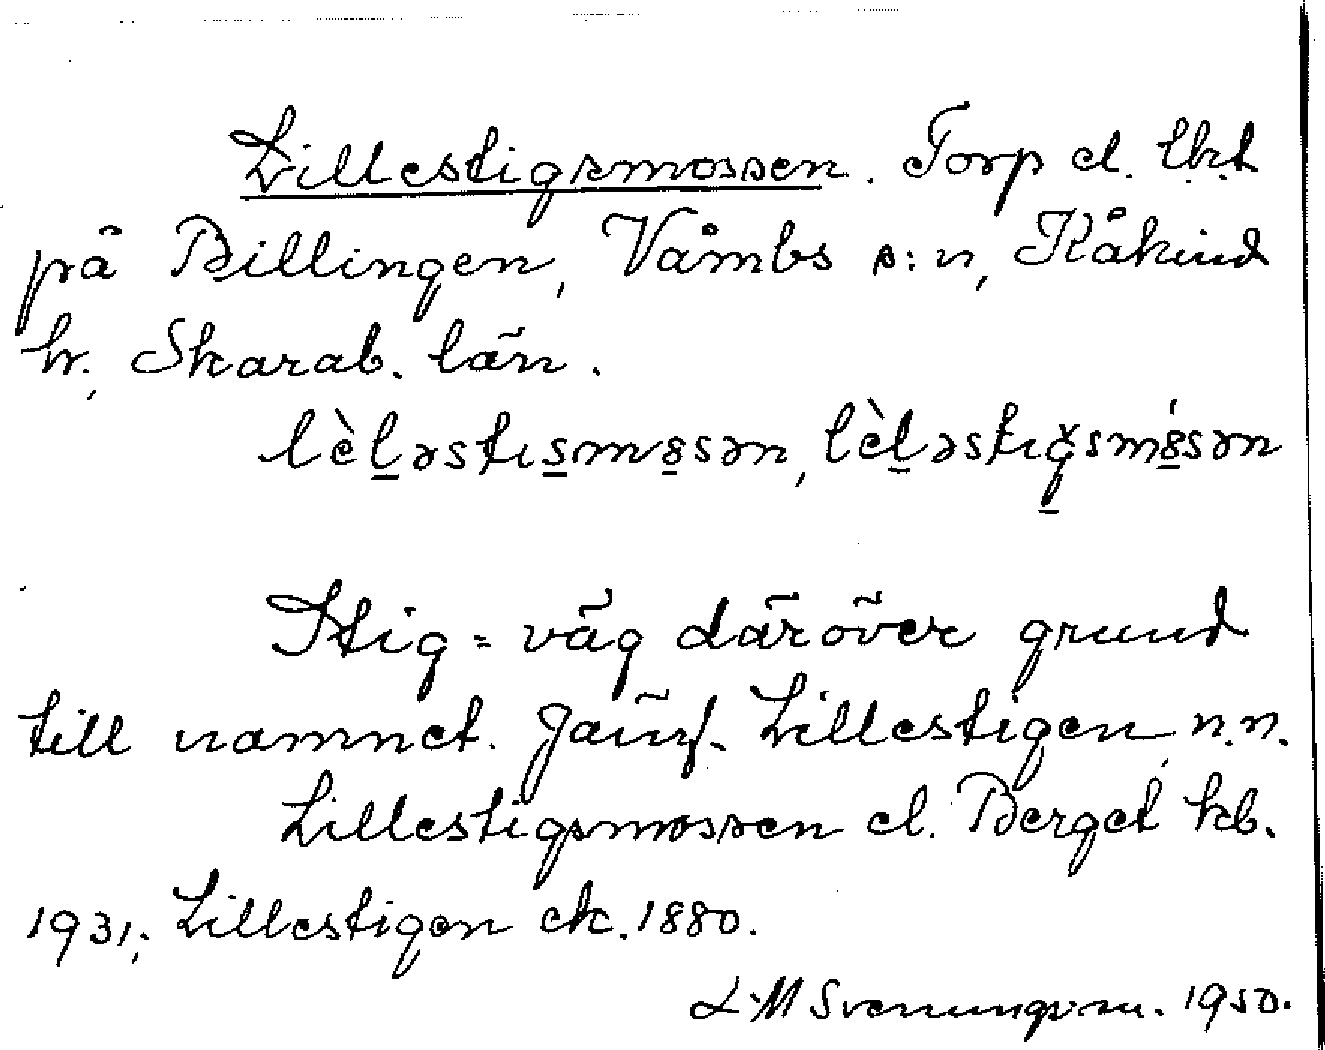 Lillestigsmossen. Torp el. lht
på Billingen, Våmbs s:n, Kåkind
hr., Skarab. län.
lèl̠əstıs̠m8̠sən, lèl̠əstıɡ̠̌sm8̠́sən
Stig = väg däröver grund
till namnet. Jämf. Lillestigen, n.n.
Lillestigsmossen el. Berget kb.
1931; Lillestigen ek. 1880.
L M Svenungsson. 1950.